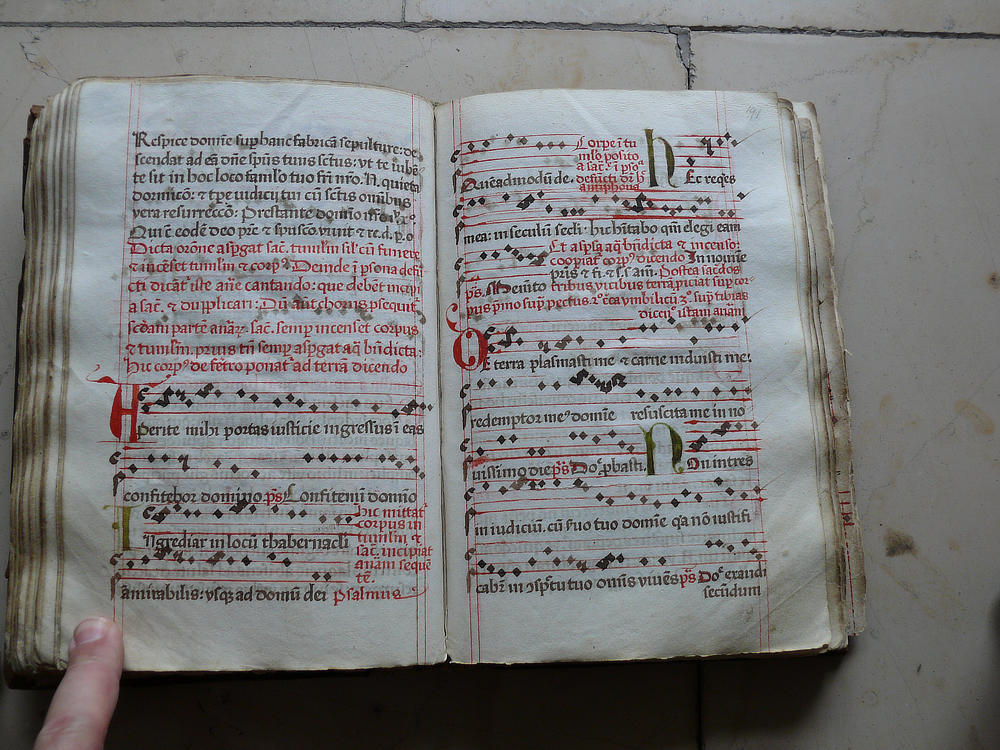 Respice domīe sup hanc fabricā sepulture: de
scendat ad eā dñe spūs tuus sctūs: vt te iubē
te sit in hoc loco famlo tuo frī nro. N. quieta
dormicō: & tpe iudicij tui cū sctīs omibus
vera resurreccō: Prestante domio
Qui cū eodē deo prē & spūscō viuit & re. d. p. o
Dicta orōne aspgat sac. tumlm sil' cū funere
& incēset tumlm & corp9 Deinde ī psona defū
cti dicāt iste añe cantando: que debēt incipi
a sac. & duplicari: Dū aūt chorus psequit
scdam partē anār sac. semp incenset corpus
& tumlm. prius tñ semp aspgat aq̄ bñdicta:
hic corp9 de fetro ponat ad terrā dicendo
Aperite mihi portas iusticie ingressus ī eas
confitebor domino ps Confitemī domno
hic mittat
corpus in
Ingrediar in locū thabernacli tumlm &
sac. incipiat
anām seque
tē.
amirabilis: vsqz ad domū dei psalmus
91
Corpe ī tu
mlo posito
a sac. ī pso
Quēadmodū de. defūcti dr h
antiphona
hEc reqes
mea: in seculū secli: hic hītabo qm elegi eam
Et aspsa aq̄ bñdicta & incenso:
cooperiat corp9 dicendo In nomīe
pris & fi. & s.s am. Postea sacdos
ps. Memēto tribus vicibus terrā pīciat sup cor
pus pmo sup pectus 2º cca vmbilicū 3º sup tibias
dicēn istam anām
DE terra plasmasti me & carne induisti me:
redemptor me9 domīe resuscita me in no
uissimo die ps Do pbasti. NOn intres
in iudiciū. cū suo tuo domīe qa nō iustifi
cabr in ɔspctu tuo omīs viuēs ps Do exaudi
secūdum